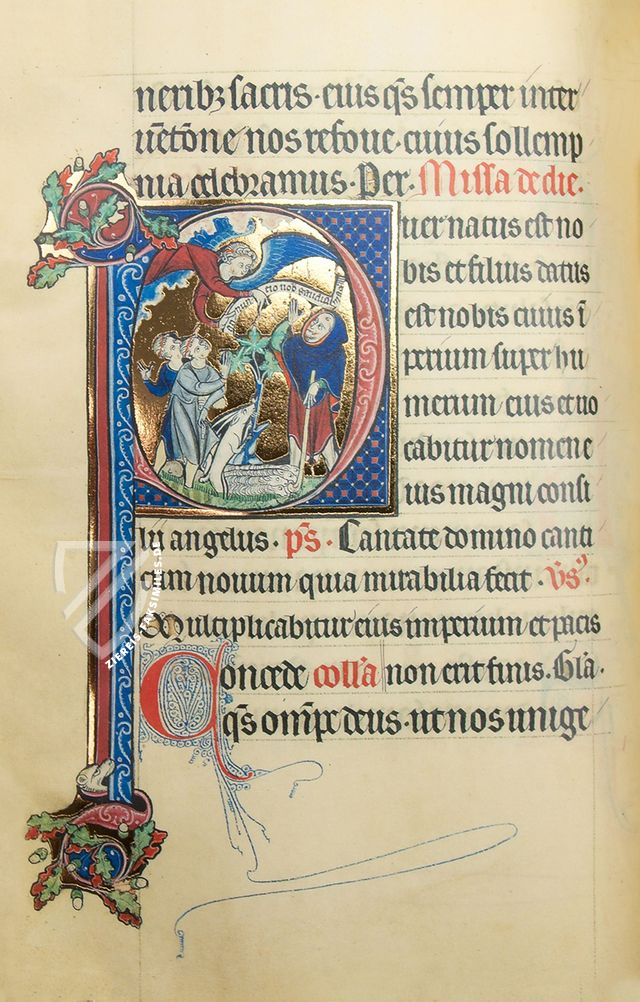 neribꝫ sacris. eius q̄s semper inter
uẽtõne nos refoue. cuius sollemp
nia celebramus. Per. Missa de die.
Puer natus est no
bis et filius datus
est nobis cuius ĩ
perium super hu
merum eius et uo
cabitur nomen e
ius magni consi
lij angelus. p̄s. Cantate domino canti
cum nouum quia mirabilia fecit. v̄s.
Multiplicabitur eius imperium et pacis
Concede coll̃a non erit finis. Gl̃a.
q̄s om̃p̃s deus. ut nos unige
ZIEREIS FAKSIMILES.DE